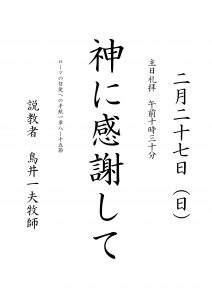 二月二十七日（日）
主日礼拝　午前十時三十分
神に感謝して
ローマの信徒への手紙一章八－十五節
説教者　鳥井一夫牧師